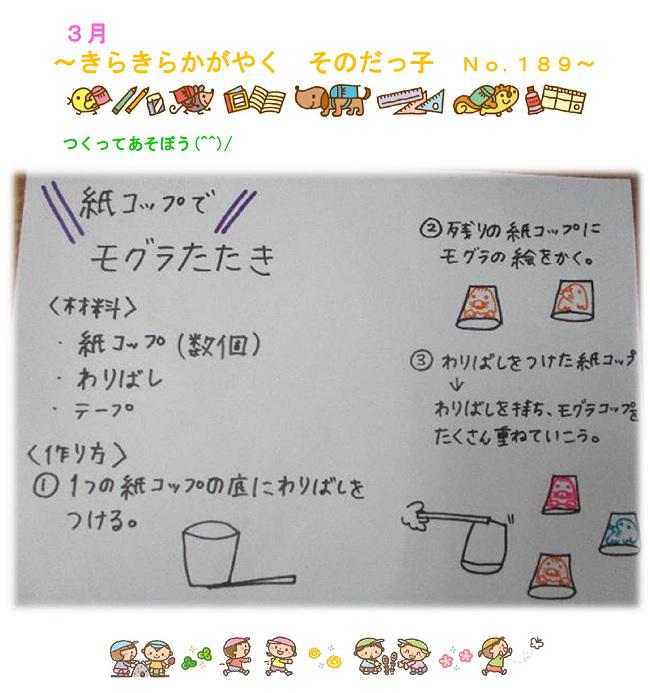 ３月
～きらきらかがやく　そのだっ子　Ｎｏ.１８９～
つくってあそぼう(^^)/
紙コップで
モグラたたき
〈材料〉
・紙コップ(数個)
・わりばし
・テープ
〈作り方〉
① 1つの紙コップの底にわりばしを
つける。
② 残りの紙コップに
モグラの絵をかく。
③ わりばしをつけた紙コップ
↓
わりばしを持ち、モグラコップを
たくさん重ねていこう。